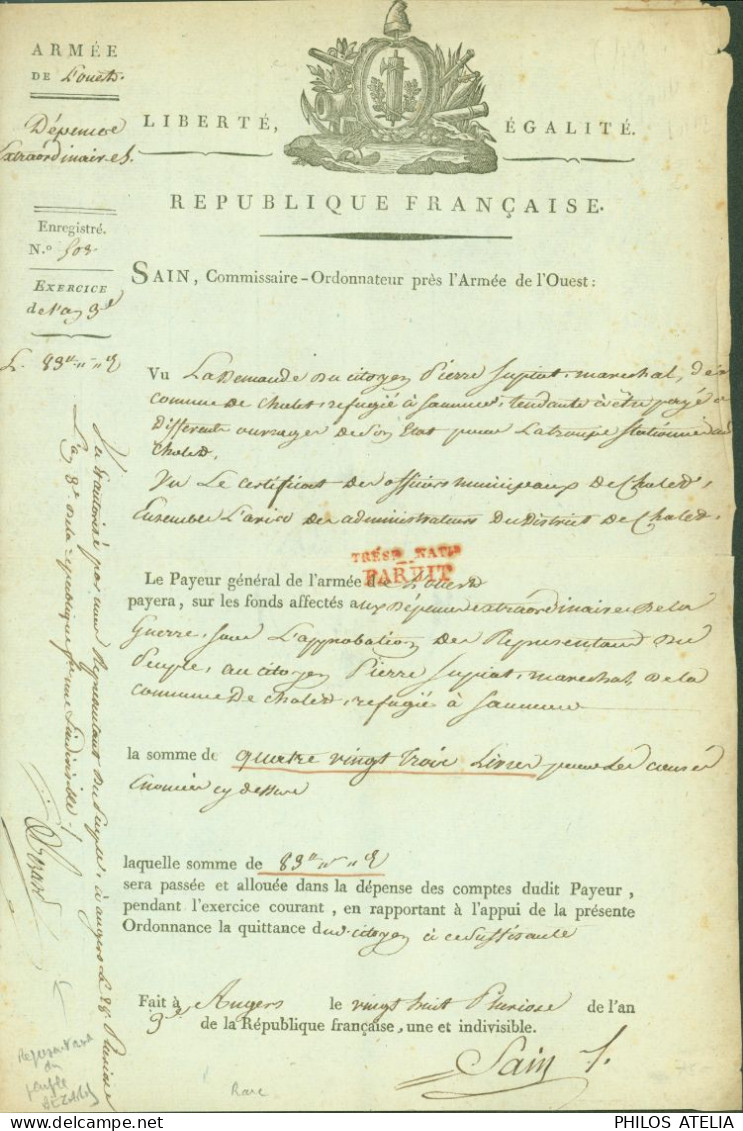 ARMÉE
DE L'ouest.
Dépenses
Extraordinaires.
LIBERTÉ,
ÉGALITÉ.
REPUBLIQUE FRANÇAISE.
Enregistré.
N.º 503
EXERCICE
de l'an 3e
L. 83
SAIN, Commissaire-Ordonnateur près l'Armée de l'Ouest:
Vu La Demande du citoyen Pierre Supiot, marechal, de la
commune de Cholet, refugié à Saumur, tendante à être payé de
differents ouvrages de son Etat pour la troupe stationnée à
Cholet.
Vu Le certificat des officiers municipaux de Cholet,
Ensemble L'avis des administrateurs du District de Cholet.
TRÉSie NATle
PAR DIT
Le Payeur général de l'armée de L'ouest
payera, sur les fonds affectés aux Dépenses extraordinaires de la
Guerre, sous L'approbation des Representans du
Peuple, au citoyen Pierre Supiot, marechal, de la
commune De Cholet, refugié à Saumur
la somme de quatre vingt trois Livres pour les causes
Enoncées cy dessus
laquelle somme de 83
sera passée et allouée dans la dépense des comptes dudit Payeur,
pendant l'exercice courant, en rapportant à l'appui de la présente
Ordonnance la quittance dud. citoyen à ce suffisante
Fait à Angers le vingt huit Pluviose de l'an
3e de la République française, une et indivisible.
Sain
Vu et autorisé par nous Représentant du Peuple, à angers Le 28 Pluviose
L'an 3e de la république française une & indivisible
Bezard
Representant
du
peuple
Rare
www.delcampe.net
PHILOS ATELIA